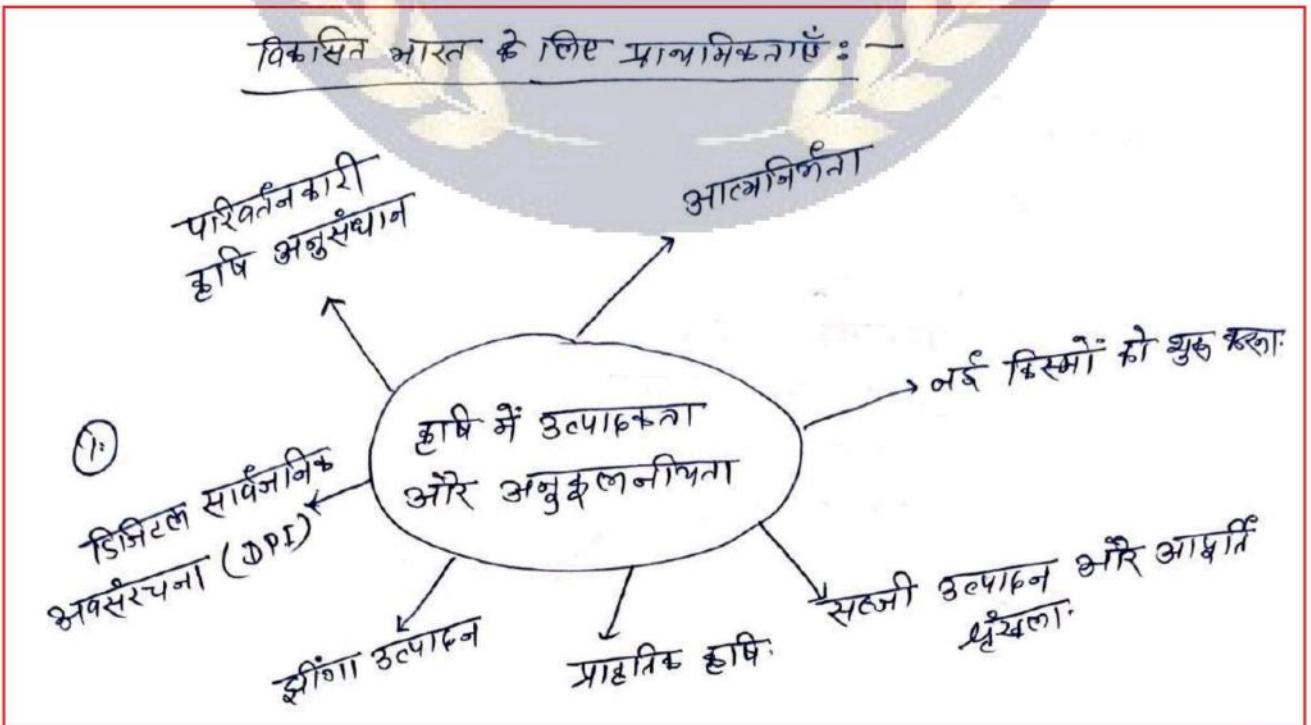 विकसित भारत के लिए प्राथमिकताएँ : —
परिवर्तनकारी
कृषि अनुसंधान
आत्मनिर्भता
नई किस्मों को शुरू करना:
कृषि में उत्पादकता
और अनुकूलनीयता
1:
डिजिटल सार्वजनिक
अवसंरचना (DPI)
झींगा उत्पादन
प्राकृतिक कृषि:
सब्जी उत्पादन और आपूर्ति
श्रृंखला: